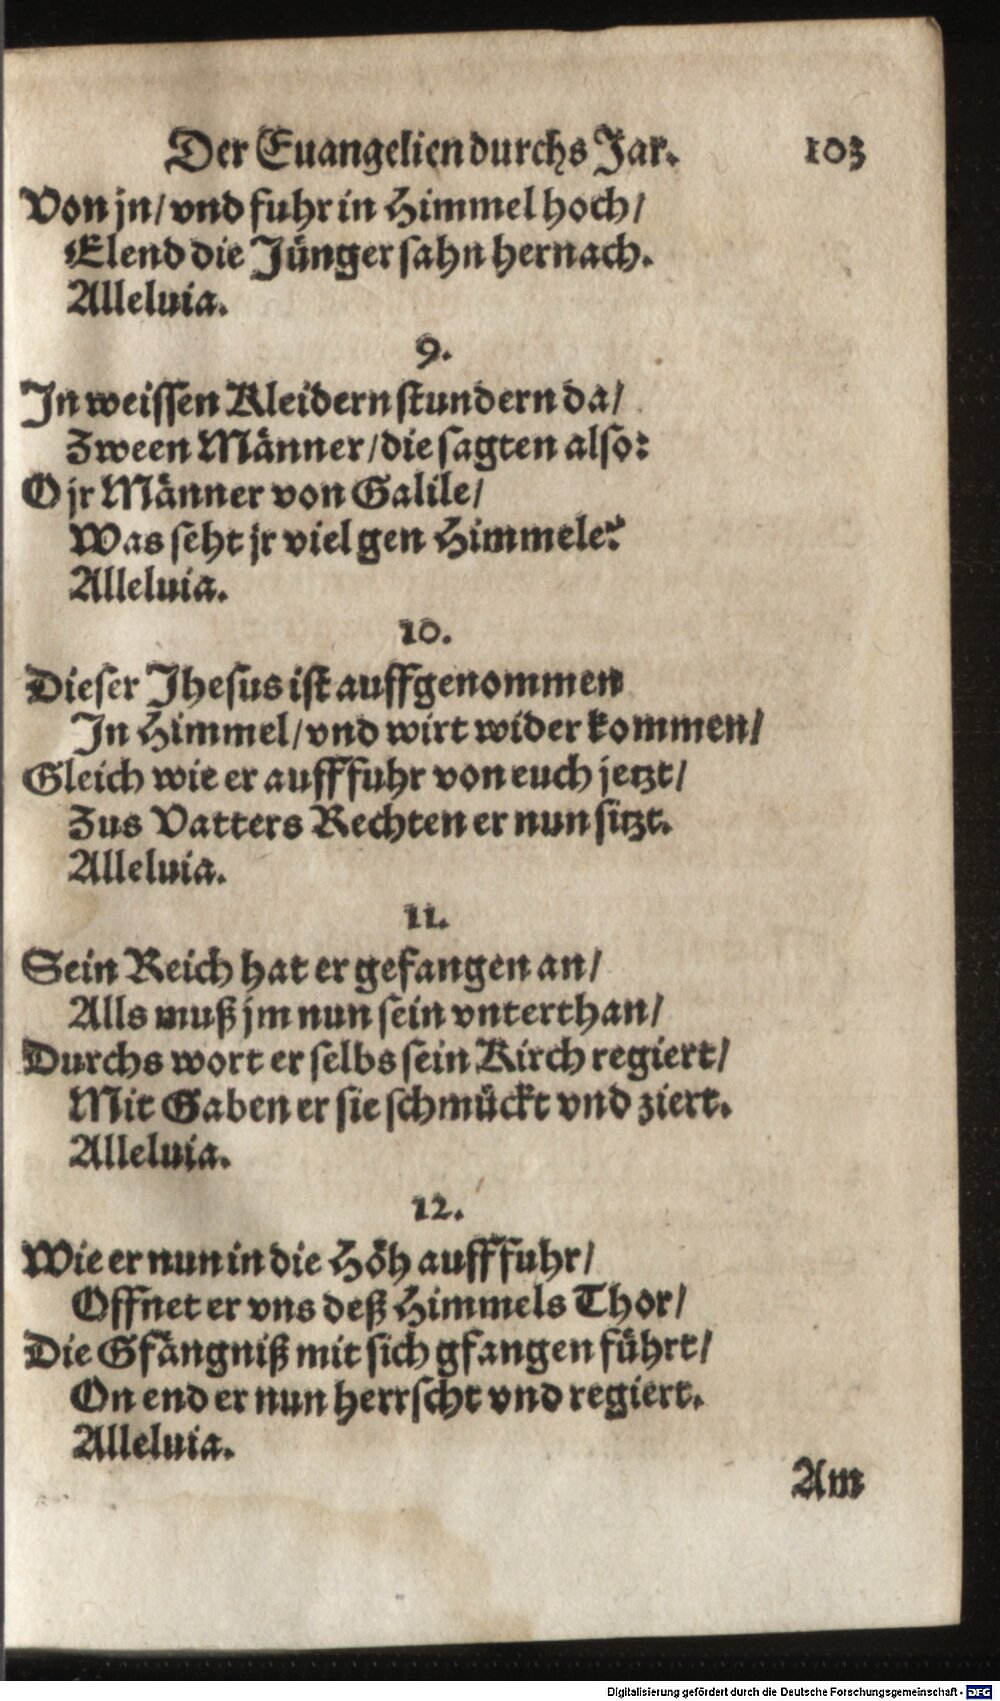 Der Euangelien durchs Jar. 103
Von jn/ vnd fuhr in Himmel hoch/
Elend die Jünger sahn hernach.
Alleluia.
9.
In weissen Kleidern stundern da/
Zween Männer/ die sagten also:
O jr Männer von Galile/
Was seht jr viel gen Himmele?
Alleluia.
10.
Dieser Jhesus ist auffgenommen
In Himmel/ vnd wirt wider kommen/
Gleich wie er aufffuhr von euch jetzt/
Zus Vatters Rechten er nun sitzt.
Alleluia.
11.
Sein Reich hat er gefangen an/
Alls muß jm nun sein vnterthan/
Durchs wort er selbs sein Kirch regiert/
Mit Gaben er sie schmückt vnd ziert.
Alleluia.
12.
Wie er nun in die Höh aufffuhr/
Offnet er vns deß Himmels Thor/
Die Gfängniß mit sich gfangen führt/
On end er nun herrscht vnd regiert.
Alleluia.
Am
Digitalisierung gefördert durch die Deutsche Forschungsgemeinschaft - DFG